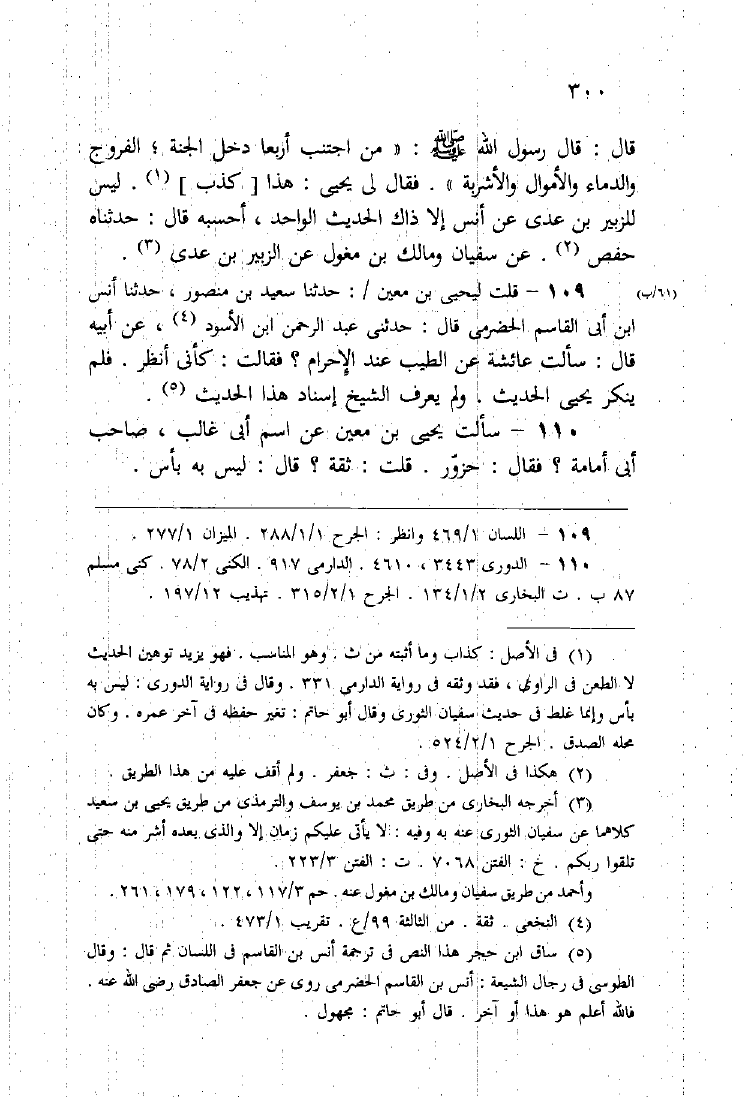 ٣٠٠
قال : قال رسول الله ﷺ : « من اجتنب أربعا دخل الجنة ؛ الفروج
والدماء والأموال والأشربة » . فقال لى يحيى : هذا [ كذب ] (١) . ليس
للزبير بن عدى عن أنس إلا ذاك الحديث الواحد ، أحسبه قال : حدثناه
حفص (٢) . عن سفيان ومالك بن مغول عن الزبير بن عدى (٣) .
١٠٩ – قلت ليحيى بن معين / : حدثنا سعيد بن منصور ، حدثنا أنس (٦١/ب)
ابن أبى القاسم الحضرمى قال : حدثنى عبد الرحمن ابن الأسود (٤) ، عن أبيه
قال : سألت عائشة عن الطيب عند الإحرام ؟ فقالت : كأنى أنظر . فلم
ينكر يحيى الحديث . ولم يعرف الشيخ إسناد هذا الحديث (٥) .
١١٠ – سألت يحيى بن معين عن اسم أبى غالب ، صاحب
أبى أمامة ؟ فقال : حزوّر . قلت : ثقة ؟ قال : ليس به بأس .
١٠٩ – اللسان ٤٦٩/١ وانظر : الجرح ٢٨٨/١/١ . الميزان ٢٧٧/١ .
١١٠ – الدورى ٣٤٤٣ ، ٤٦١٠ . الدارمى ٩١٧ . الكنى ٧٨/٢ . كنى مسلم
٨٧ ب . ت البخارى ١٣٤/١/٢ . الجرح ٣١٥/٢/١ . تهذيب ١٩٧/١٢ .
(١) فى الأصل : كذاب وما أثبته من ث . وهو المناسب . فهو يزيد توهين الحديث
لا الطعن فى الراوي ، فقد وثقه فى رواية الدارمى ٣٣١ . وقال فى رواية الدورى : ليس به
بأس وإنما غلط فى حديث سفيان الثورى وقال أبو حاتم : تغير حفظه فى آخر عمره . وكان
محله الصدق . الجرح ٥٢٤/٢/١ .
(٢) هكذا فى الأصل . وفى : ث : جعفر . ولم أقف عليه من هذا الطريق .
(٣) أخرجه البخارى من طريق محمد بن يوسف والترمذى من طريق يحيى بن سعيد
كلاهما عن سفيان الثورى عنه به وفيه : لا يأتى عليكم زمان إلا والذى بعده أشر منه حتى
تلقوا ربكم . خ : الفتن ٧٠٦٨ . ت : الفتن ٢٢٣/٣ .
وأحمد من طريق سفيان ومالك بن مغول عنه . حم ١١٧/٣ ، ١٢٢ ، ١٧٩ ، ٢٦١ .
(٤) النخعى . ثقة . من الثالثة ٩٩/ع . تقريب ٤٧٣/١ .
(٥) ساق ابن حجر هذا النص فى ترجمة أنس بن القاسم فى اللسان ثم قال : وقال
الطوسى فى رجال الشيعة : أنس بن القاسم الحضرمى روى عن جعفر الصادق رضى الله عنه .
فالله أعلم هو هذا أو آخر . قال أبو حاتم : مجهول .